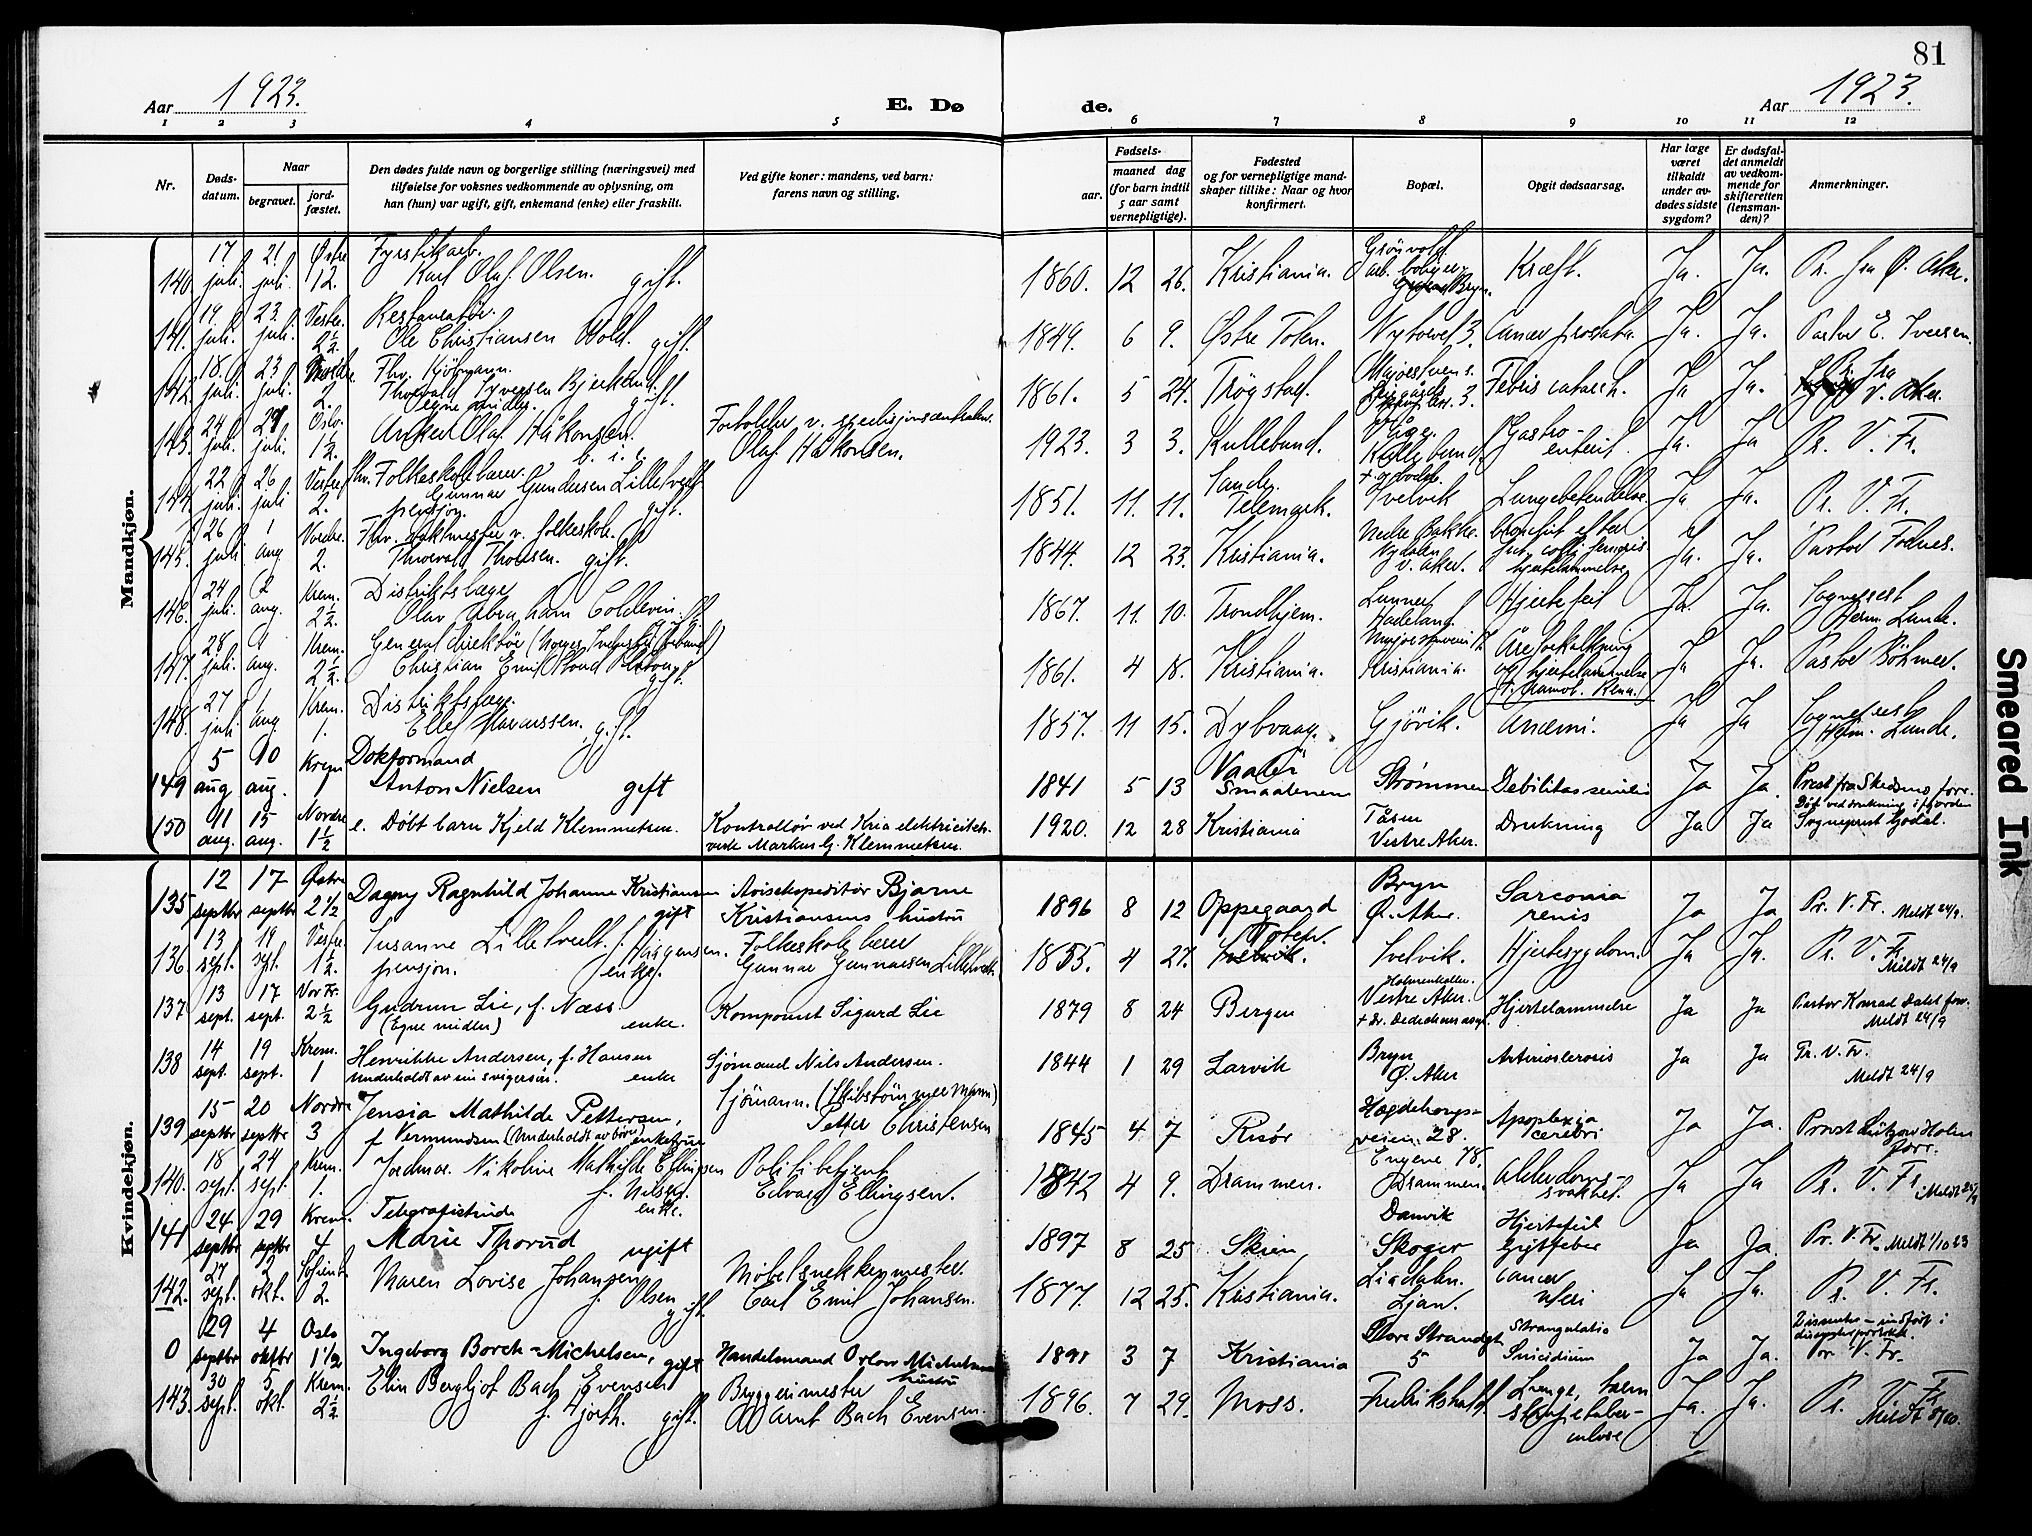 81
Aar 1923.
E. Dø
de.
Aar 1923.
1 2 3 4 5 6 7 8 9 10 11 12
Nr.
Døds-
datum.
Naar
begravet.
jord-
fæstet.
Den dødes fulde navn og borgerlige stilling (næringsvei) med
tilføielse for voksnes vedkommende av oplysning, om
han (hun) var ugift, gift, enkemand (enke) eller fraskilt.
Ved gifte koner: mandens, ved barn:
farens navn og stilling.
Fødsels-
aar.
maaned dag
(for barn indtil
5 aar samt
vernepligtige).
Fødested
og for vernepligtige mand-
skaper tillike: Naar og hvor
konfirmert.
Bopæl.
Opgit dødsaarsag.
Har læge
været
tilkaldt
under av-
dødes sidste
sygdom?
Er dødsfal-
det anmeldt
av vedkom-
mende for
skifteretten
(lensman-
den)?
Anmerkninger.
Mandkjøn.
140. 17 juli. 21 juli. Østre 12. Fyrstikarb. Karl Olaf Olsen. gift. 1860. 12 26. Kristiania. Grønvold arb. boliger Bryn. Kræft. Ja. Ja. Pr. fra Ø. Aker.
141. 19 juli. 23. juli. Vestre. 2½ Restauratør. Ole Christiansen Wold. gift. 1849. 6 9. Østre Toten. 3. Cancer prostata. Ja. Ja. Pastor E. Iversen.
142. 18. juli. 23 juli. 2. Fhv. Kjøbmann. Thorvald Syversen Bjerkeng. egne midler. gift. 1861. 5 24. Trøgstad. Majorstuens. 3. Febris catarrh. Ja Ja. fra V. Aker.
143. 24 juli. juli. Oslo. 1½. Olaf Håkonsen. Forvalter v. Olaf Håkonsen. 1923. 3 3. Kullebund. Kullebund Gastro-enterit. Ja. Ja Pr. V. Fr.
144. 22 juli. 26 juli Vestre 2. fhv. Folkeskolelærer. Gunnar Gundersen Lilletvedt pensjon. gift. 1851. 11. 11. Sande. Telemark. Svelvik Lungebetendelse Ja Ja. Pr. V. Fr.
145. 26 juli 1 aug 2. Fhv. vaktmester v. folkeskole. Thorvald Thorsen. gift. 1844. 12 23. Kristiania. Nedre Bakke. Nydalen V. Aker. efter colli femoris hjertelammelse Ja. Ja. Pastor Fodnes.
146. 24 juli. 2 aug. Krem. 2½. Distriktslæge Olav Abraham Coldevin. gift. 1867. 11. 10. Trondhjem. Lunner Hadeland. Hjertefeil Ja. Ja. Sogneprest Herm. Lunde.
147. 28 juli. 1 aug. Krem. 2½. Generaldirektør (Norges Industriforbund) Christian Emil Stoud Platou. gift. 1861. 4 18. Kristiania. Majorstuvein 17. Kristiania. Åreforkalkning og hjertelammelse (†. Hamob. Rena.) Ja Ja. Pastor Böhmer.
148. 27 juli 1 aug Krem. 1. Distriktslæge. Ellef Mararssen. gift. 1857. 11 15. Dybvaag. Gjøvik. Anæmi. Ja Ja Sogneprest Herm. Lunde.
149 5 aug 10 aug. Krem 1 Doktormand Anton Nielsen gift 1841 5 13 Vaaler Smaalenene Strømmen Debilitas senilis Ja Ja. Prest fra Skedsmo forr.
150 11 aug. 15 aug. Nordre 1½ e. Døbt barn Kjeld Klemmetsen. Kontrollør ved Kria elektricitetsverk Markus G. Klemmetsen. 1920. 12 28 Kristiania Tåsen Vestre Aker. Drukning Ja Ja Død ved drukning i fjorden Sogneprest Hjodal.
Kvindekjøn.
135 12 septbr 17 septbr Østre 2½ Dagny Ragnhild Johanne Kristiansen gift Avisekspeditør Bjarne Kristiansens hustru 1896 8 12 Oppegaard Bryn Ø. Aker. Sarcoma renis Ja Ja Pr. V. Fr. Meldt 24/9.
136. 13 sept. 19 sept. Vestre. 1½. Susanne Lilletvedt. f. Haagensen. pensjon. enke. Folkeskolelærer Gunnar Gunnarsen Lilletvedt. 1855. 4 27. Toten. Svelvik. Svelvik. Hjertesygdom. Ja Ja. Pr. V. Fr. Meldt 24/9
137 13 sept. 17 sept. Vor Fr. 2½ Gudrun Lie, f. Næss (Egne midler) enke. Komponist Sigurd Lie 1879 8 24 Bergen Holmenkollen. Vestre Aker. + Dr. Dedichens asyl. Hjertelammelse Ja Ja Pastor Konrad Dahl forr. Meldt 24/9
138 14 sept. 19 sept. Krem. 1 Henrikke Andersen, f. Hansen Underholdt av sin svigersøn. enke Sjømand Nils Andersen. 1844 1 29 Larvik Bryn Ø. Aker Arteriosclerosis Ja Ja Pr. V. Fr. Meldt 24/9
139 15 septbr 20 septbr Nordre 3 Jensia Mathilde Pettersen, f. Vermundsen (Underholdt av børn) enkefrue Sjømann. (Skibstømmermann) Petter Christensen 1845 4 7 Risør Hægdehougsveien 28. Apoplexia cerebri Ja Ja. Prost Lützow Holm forr.
140. 18 sept. 24 sept. Krem. 1. Jordmor. Nikoline Mathilde Ellingsen f. Nilsen. enke. Politibetjent Edvard Ellingsen. 1842 4 9. Drammen. Engene 78. Drammen. Alderdomssvakhet. Ja Ja Pr. V. Fr. Meldt 25/9
141 24 septbr 29 septbr Krem. 4 Telegrafistinde Marie Thorud ugift 1897 8 25 Skien, Danvik Skoger Hjertefeil Gigtfeber Ja Ja. Pr. V. Fr. Meldt 1/10 23
142. 27 sept. 3 okt. Sofienb. 2. Maren Lovise Johansen f. Olsen gift. Møbelsnekkermester. Carl Emil Johansen. 1877. 12 25. Kristiania. Liadalen. Ljan. Cancer uteri Ja Ja. Pr. V. Fr.
0 29 septbr 4 oktbr Oslo 1½ Ingeborg Borch-Michelsen, gift Handelsmand Orlow Michelsens hustru 1891 3 7 Kristiania Store Strandgt 5 Strangulatio Suicidium Ja Ja. Dissenter - indført i dissenterprotokoll. Pr. V. Fr.
143. 30 sept. 5 okt. Krem. 2½ Elin Bergljot Bach Evensen f. Hjorth. gift. Bryggerimester Arnt Bach Evensen. 1896. 7 29. Moss. Fredrikshald. Lunge, tarm strupetuberculose Ja. Ja. Pr. V. Fr. Meldt 8/10.
Smeared Ink